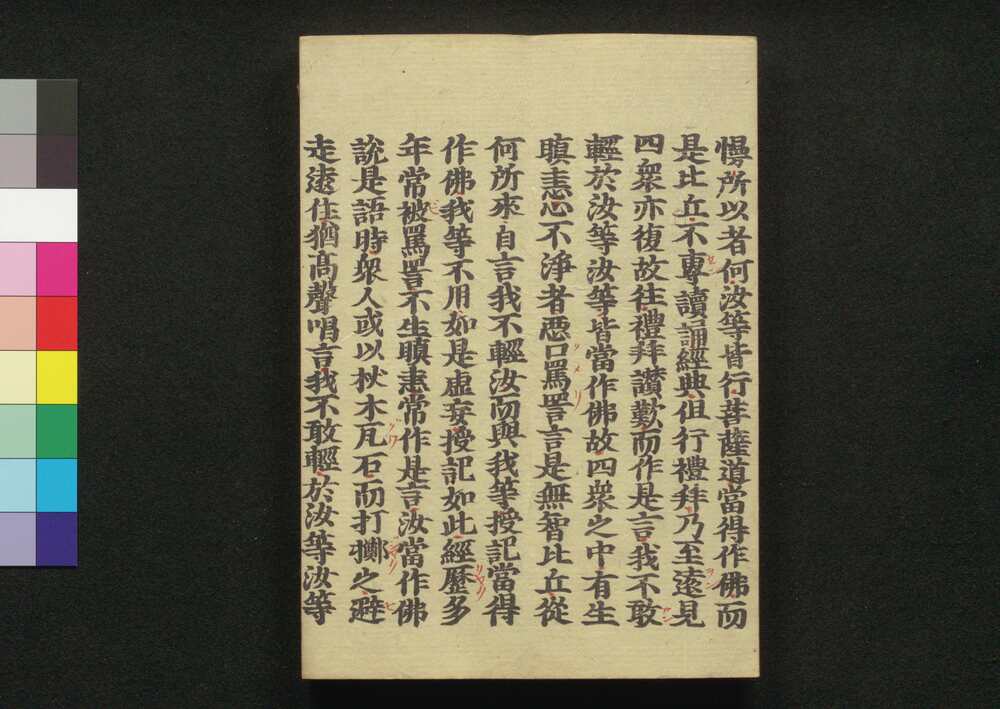 慢所以者何汝等皆行菩薩道當得作佛而
是比丘不專讀誦經典但行禮拜乃至遠見
四衆亦復故往禮拜讃歎而作是言我不敢
輕於汝等汝等皆當作佛故四衆之中有生
瞋恚心不淨者惡口罵詈言是無智比丘從
何所來自言我不輕汝而與我等授記當得
作佛我等不用如是虛妄授記如此經歷多
年常被罵詈不生瞋恚常作是言汝當作佛
說是語時衆人或以杖木瓦石而打擲之避
走遠住猶高聲唱言我不敢輕於汝等汝等